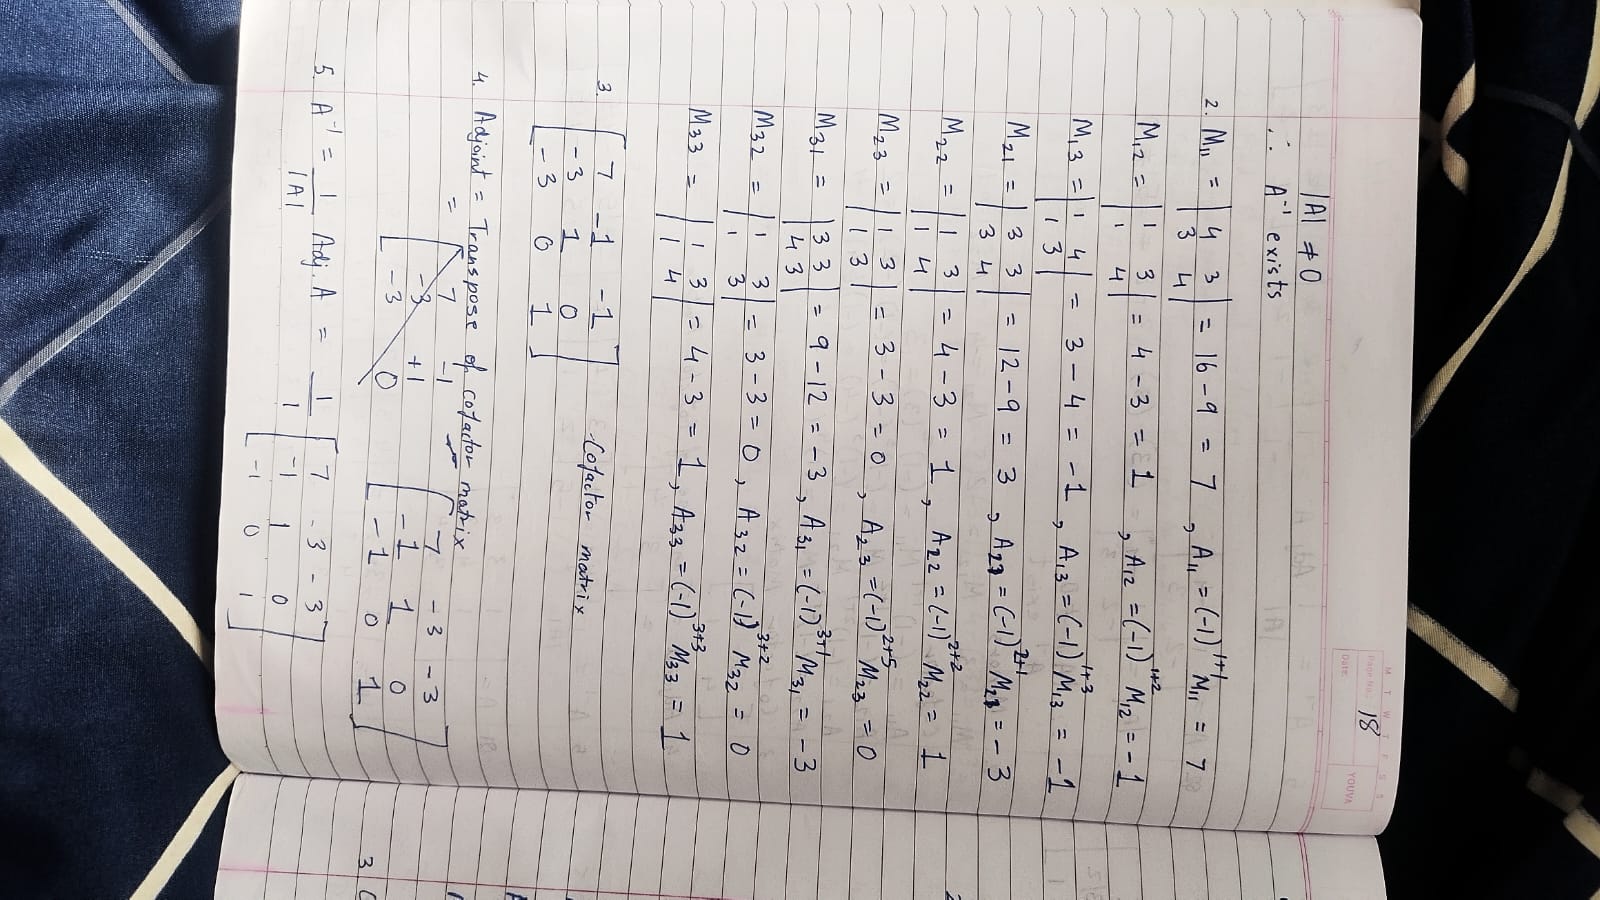 M T W T F S S
Page No.: 18
Date:
YOUVA
|A| ≠ 0
∴ A⁻¹ exists
2. M₁₁ = | 4 3 | = 16 - 9 = 7 , A₁₁ = (-1)¹⁺¹ M₁₁ = 7
| 3 4 |
M₁₂ = | 1 3 | = 4 - 3 = 1 , A₁₂ = (-1)¹⁺² M₁₂ = - 1
| 1 4 |
M₁₃ = | 1 4 | = 3 - 4 = -1 , A₁₃ = (-1)¹⁺³ M₁₃ = -1
| 1 3 |
M₂₁ = | 3 3 | = 12 - 9 = 3 , A₂₁ = (-1)²⁺¹ M₂₁ = - 3
| 3 4 |
M₂₂ = | 1 3 | = 4 - 3 = 1 , A₂₂ = (-1)²⁺² M₂₂ = 1
| 1 4 |
M₂₃ = | 1 3 | = 3 - 3 = 0 , A₂₃ = (-1)²⁺⁵ M₂₃ = 0
| 1 3 |
M₃₁ = | 3 3 | = 9 - 12 = -3 , A₃₁ = (-1)³⁺¹ M₃₁ = - 3
| 4 3 |
M₃₂ = | 1 3 | = 3 - 3 = 0 , A₃₂ = (-1)³⁺² M₃₂ = 0
| 1 3 |
M₃₃ = | 1 3 | = 4 - 3 = 1 , A₃₃ = (-1)³⁺³ M₃₃ = 1
| 1 4 |
3. [ 7 -1 -1 ] Cofactor matrix
[ -3 1 0 ]
[ -3 0 1 ]
4. Adjoint = Transpose of cofactor matrix
= [ 7 -1 [ 7 -3 -3 ]
-3 +1 [ -1 1 0 ]
-3 0 [ -1 0 1 ]
5. A⁻¹ = 1/|A| Adj. A = 1/1 [ 7 -3 -3 ]
[ -1 1 0 ]
[ -1 0 1 ]